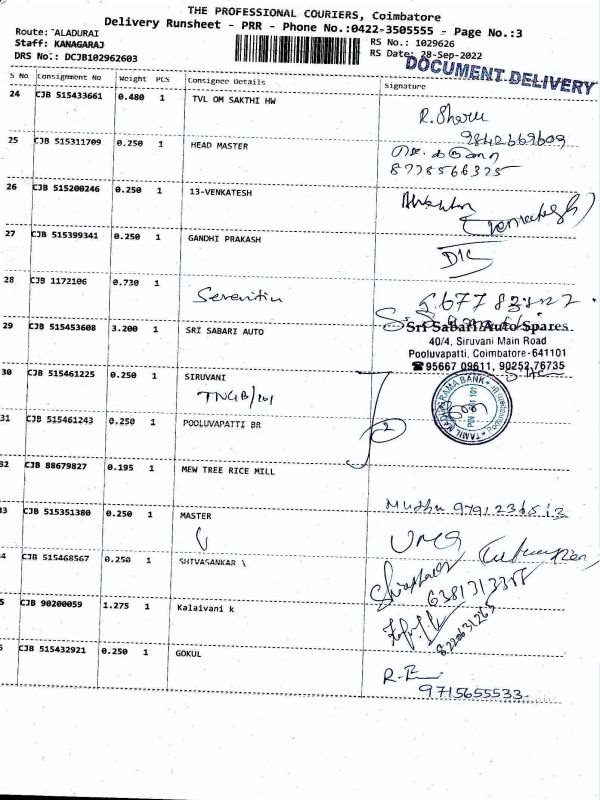 THE PROFESSIONAL COURIERS, Coimbatore
Delivery Runsheet - PRR - Phone No.:0422-3505555 - Page No.:3
Route: ALADURAI
Staff: KANAGARAJ
DRS No.: DCJB102962603
RS No.: 1029626
RS Date: 28-Sep-2022
DOCUMENT DELIVERY
S No Consignment No Weight PCS Consignee Details Signature
24 CJB 515433661 0.480 1 TVL OM SAKTHI HW
9842669609
25 CJB 515311709 0.250 1 HEAD MASTER
8778566375
26 CJB 515200246 0.250 1 13-VENKATESH
27 CJB 515399341 0.250 1 GANDHI PRAKASH
28 CJB 1172106 0.730 1
29 CJB 515453608 3.200 1 SRI SABARI AUTO
Sri Sabari Auto Spares
40/4, Siruvani Main Road
Pooluvapatti, Coimbatore-641101
☎95667 09611, 90252 76735
30 CJB 515461225 0.250 1 SIRUVANI
TNGB/101
31 CJB 515461243 0.250 1 POOLUVAPATTI BR
2
32 CJB 88679827 0.195 1 MEW TREE RICE MILL
33 CJB 515351380 0.250 1 MASTER
UMA
34 CJB 515468567 0.250 1 SHIVASANKAR \
5 CJB 90200059 1.275 1 Kalaivani k
CJB 515432921 0.250 1 GOKUL
9715655533